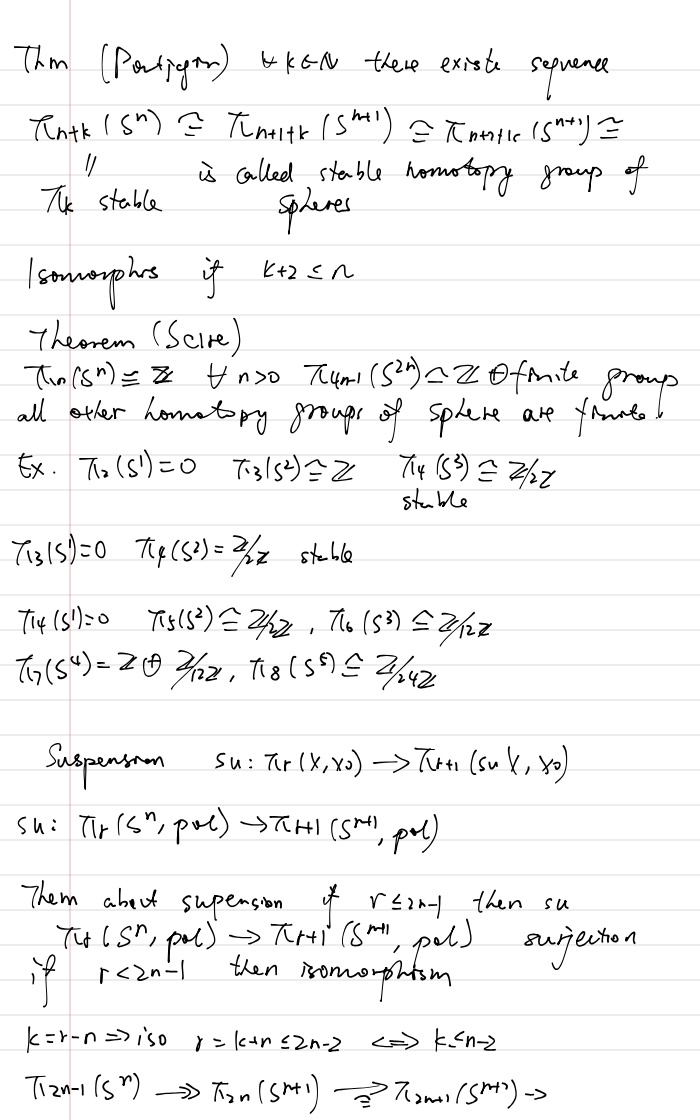 Thm (Pontjagin) ∀ k∈N there exists sequence
π_{n+k}(S^n) ≅ π_{n+1+k}(S^{n+1}) ≅ π_{n+n+1c}(S^{n+1}) ≅
" is called stable homotopy group of
π_k stable spheres
Isomorphrs if k+2 ≤ n
Theorem (Scire)
π_n(S^n) ≅ Z ∀ n>0 π_{4n-1}(S^{2n}) ≃ Z ⊕ finite group
all other homotopy groups of sphere are finite!
Ex. π_2(S^1)=0 π_3(S^2) ≅ Z π_4(S^3) ≅ Z/2Z
stable
π_3(S^1)=0 π_4(S^2)=Z/2Z stable
π_4(S^1)=0 π_5(S^2) ≅ Z/2Z, π_6(S^3) ≅ Z/12Z
π_7(S^4)=Z⊕Z/12Z, π_8(S^5) ≅ Z/24Z
Suspension su: π_r(X,x_0) → π_{r+1}(su X, x_0)
su: π_r(S^n, pol) → π_{r+1}(S^{n+1}, pol)
Them about supension if r ≤ 2n-1 then su
π_r(S^n, pol) → π_{r+1}(S^{n+1}, pol) surjection
if r<2n-1 then isomorphism
k=r-n ⇒ iso r = k+n ≤ 2n-2 ⟺ k ≤ n-2
π_{2n-1}(S^n) ↠ π_{2n}(S^{n+1}) →≅ π_{2n+1}(S^{n+2}) →